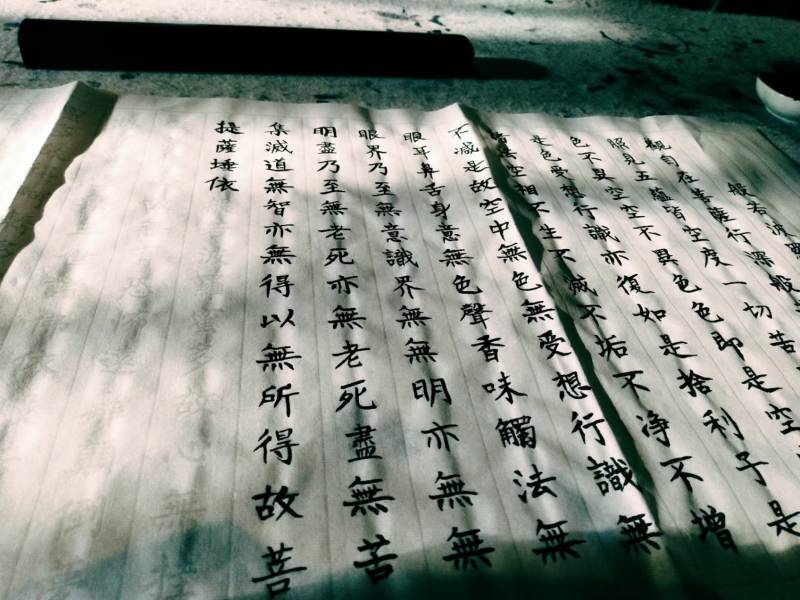 般若波羅
觀自在菩薩行深般
照見五蘊皆空度一切苦
色不異空空不異色色即是空
是色受想行識亦復如是捨利子是
諸法空相不生不滅不垢不净不增
不滅是故空中無色無受想行識無
眼耳鼻舌身意無色聲香味觸法無
眼界乃至無意識界無無明亦無無
明盡乃至無老死亦無老死盡無苦
集滅道無智亦無得以無所得故菩
提薩埵依